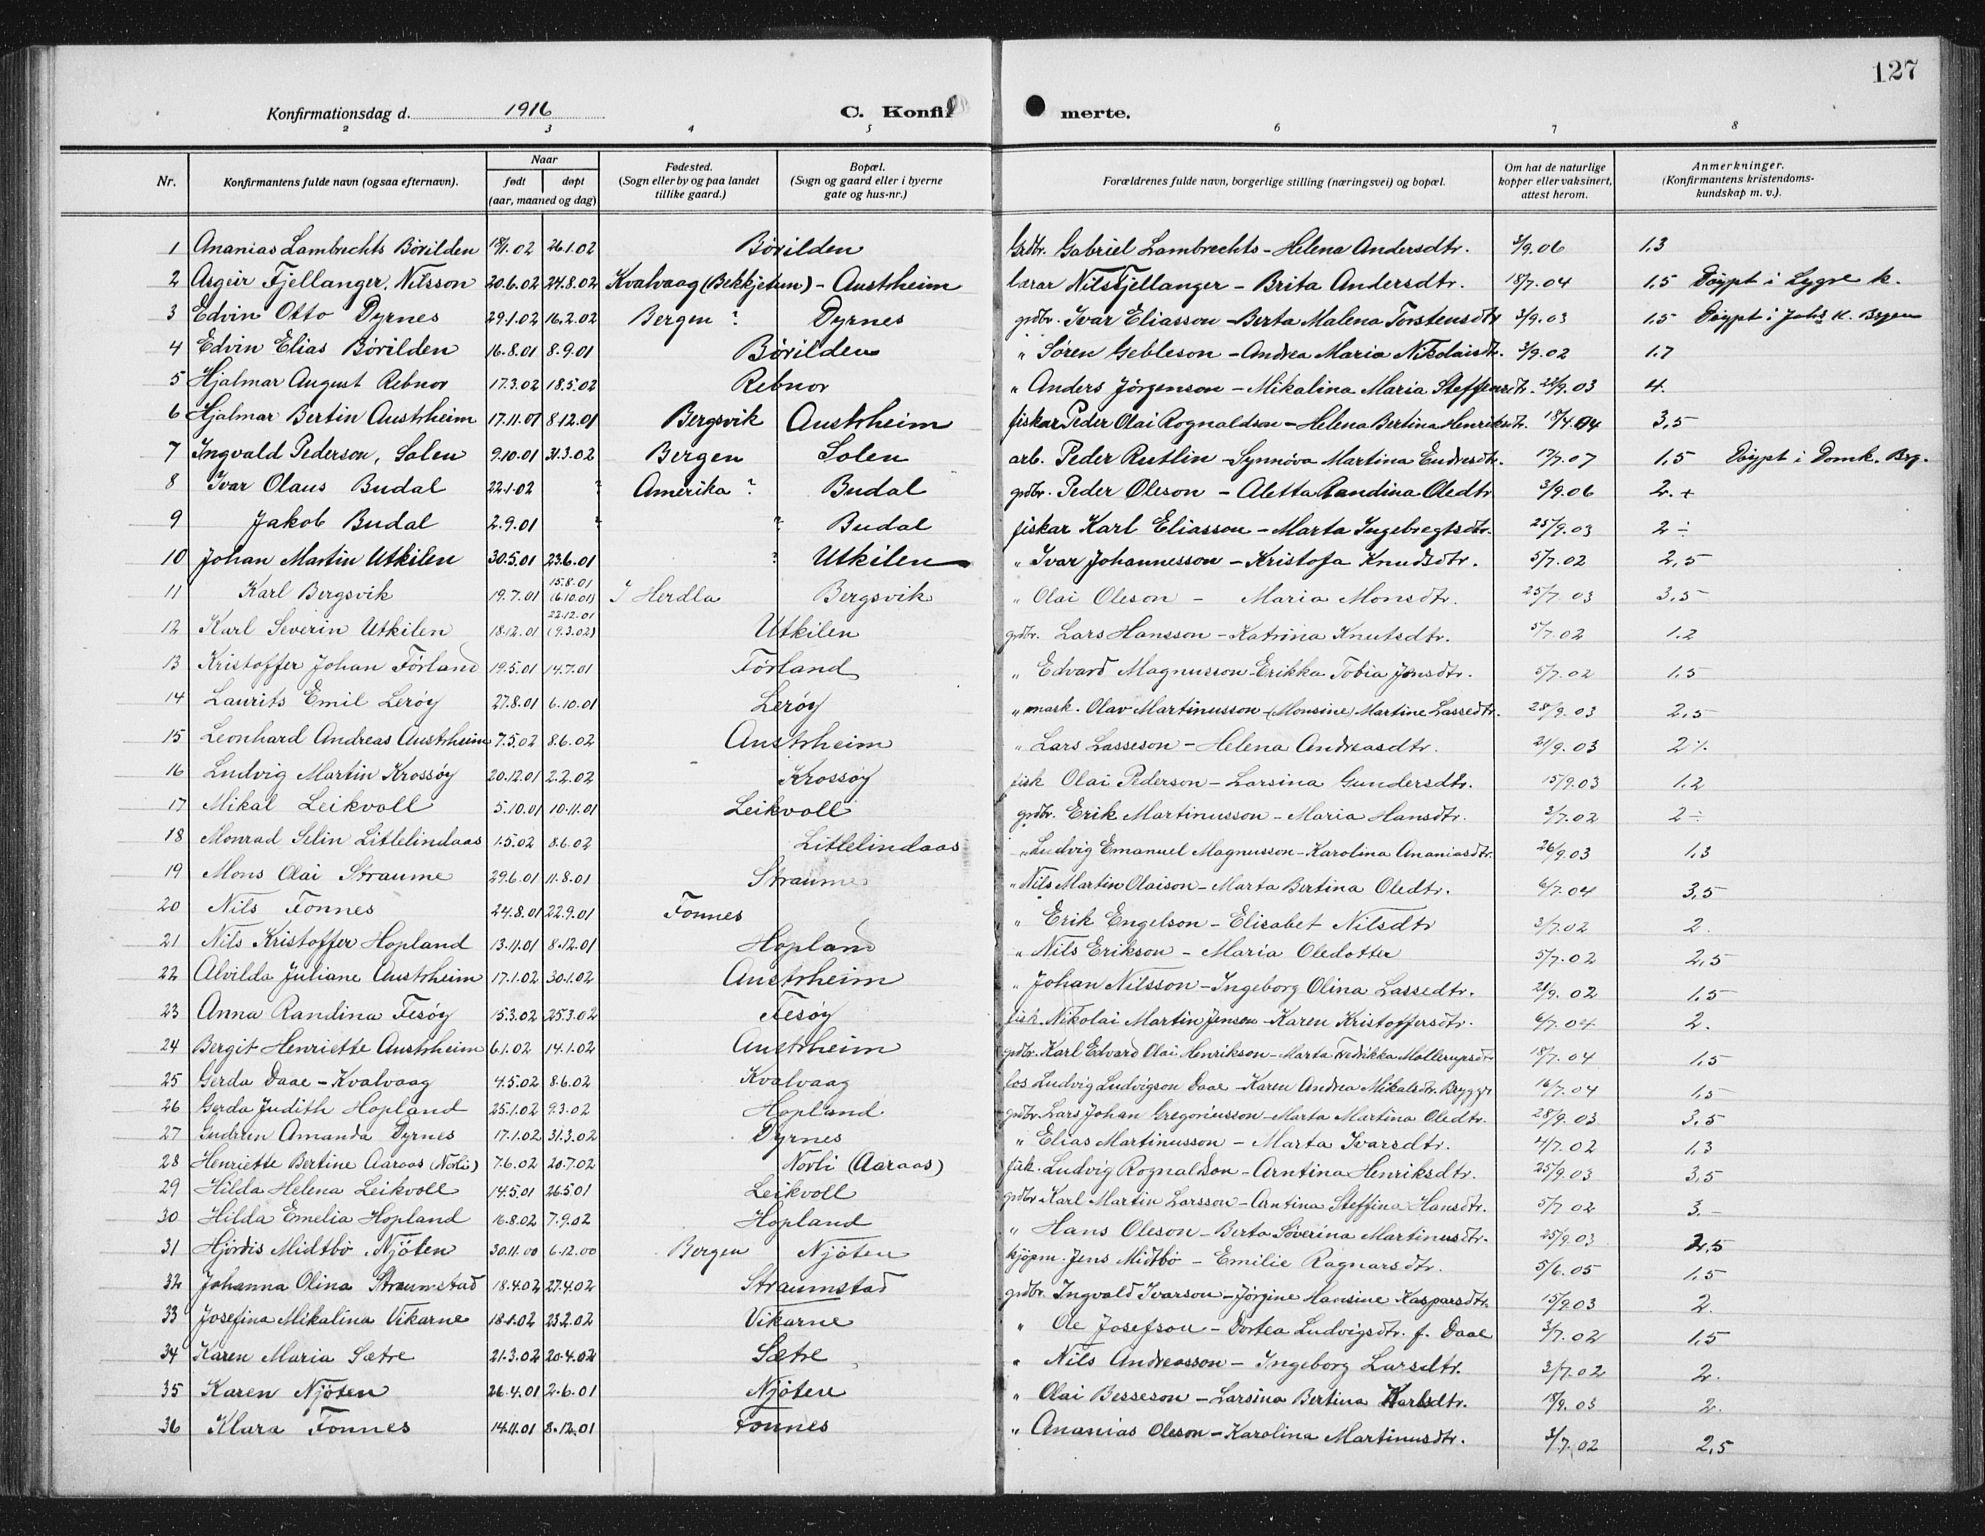 127
Konfirmationsdag d. 1916 C. Konfir merte.
2 3 4 5 6 7 8
Nr. Konfirmantens fulde navn (ogsaa efternavn). Naar født døpt (aar, maaned og dag) Fødested. (Sogn eller by og paa landet tillike gaard.) Bopæl. (Sogn og gaard eller i byerne gate og hus-nr.) Forældrenes fulde navn, borgerlige stilling (næringsvei) og bopæl. Om hat de naturlige kopper eller vaksinert, attest herom. Anmerkninger. (Konfirmantens kristendoms-kundskap m. v.).
1 Ananias Lambrechts Börilden 18/1.02 26.1.02 Börilden Grdbr. Gabriel Lambrechts - Helena Andersdtr. 3/9.06 1.3
2 Asgeir Fjellanger, Nilsson 20.6.02 24.8.02 Kvalvaag (Bekkjetun) - Austrheim lærar Nils Fjellanger - Brita Andersdtr. 18/7.04 1,5 Döypt i Lygre k.
3 Edvin Otto Dyrnes 29.1.02 16.2.02 Bergen ? Dyrnes grdbr. Ivar Eliasson - Berta Malena Torstensdtr 3/9.03 1.5 Döypt i Johs k. Brgen
4 Edvin Elias Börilden 16.8.01 8.9.01 Börilden " Sören Gebleson - Andrea Maria Nikolaisdtr. 3/9.02 1.7
5 Hjalmar August Rebnor 17.3.02 18.5.02 Rebnor " Anders Jörgenson - Mikalina Maria Steffensdtr. 22/9.03 4.
6 Hjalmar Bertin Austrheim 17.11.01 8.12.01 Bergsvik Austrheim fiskar Peder Olai Rognaldson - Helena Bertina Henriksdt. 18/7.04 3,5
7 Ingvald Pederson, Solen 9.10.01 31.3.02 Bergen Solen arb. Peder Rutlin - Synnöva Martina Endresdtr. 17/7.07 1,5 Döypt i Domk. Brg.
8 Ivar Olaus Budal 22.1.02 ? Amerika ? Budal grdbr. Peder Oleson - Aletta Randina Oledtr 3/9.06 2.+
9 Jakob Budal 2.9.01 ? ? Budal fiskar Karl Eliasson - Marta Ingebregtsdtr. 25/9.03 2 ÷
10 Johan Martin Utkilen 30.5.01 23.6.01 ? Utkilen " Ivar Johannesson - Kristofa Knudsdtr. 5/7.02 2,5
11 Karl Bergsvik 19.7.01 15.8.01 (6.10.01) I Herdla Bergsvik " Olai Oleson - Maria Monsdtr. 25/7.03 3,5
12 Karl Severin Utkilen 18.12.01 22.12.01 (9.3.02) Utkilen grdbr. Lars Hansson - Katrina Knutsdtr. 5/7.02 1.2
13 Kristoffer Johan Förland 19.5.01 14.7.01 Förland " Edvard Magnusson - Erikka Tobia Jonsdtr. 5/7.02 1.5
14 Laurits Emil Leröy 27.8.01 6.10.01 Leröy " mask. Olav Martinusson - (Monsine) Martine Lassedtr. 28/9.03 2,5
15 Leonhard Andreas Austrheim 7.5.02 8.6.02 Austrheim " Lars Lasseson - Helena Andreasdtr. 21/9.03 2 ÷
16 Ludvig Martin Krossöy 20.12.01 2.2.02 Krossöy fisk Olai Pederson - Larsina Gundersdtr. 15/9.03 1.2
17 Mikal Leikvoll 5.10.01 10.11.01 Leikvoll grdbr. Erik Martinusson - Maria Hansdtr. 3/7.02 2 ÷
18 Monrad Selin Litlelindaas 1.5.02 8.6.02 Litlelindaas " Ludvig Emanuel Magnusson - Karolina Ananiasdtr. 26/9.03 1,3
19 Mons Olai Straume 29.6.01 11.8.01 Straume " Nils Martin Olaison - Marta Bertina Oledtr. 6/7.04 3,5
20 Nils Fonnes 24.8.01 22.9.01 Fonnes " Erik Engelson - Elisabet Nilsdtr 3/7.02 2.
21 Nils Kristoffer Hopland 13.11.01 8.12.01 Hopland " Nils Erikson - Maria Oledotter 5/7.02 2,5
22 Alvilda Juliane Austrheim 17.1.02 30.1.02 Austrheim " Johan Nilsson - Ingeborg Olina Lassedtr. 21/9.02 1.5
23 Anna Randina Fesöy 15.3.02 25.3.02 Fesöy fisk. Nikolai Martin Jenson - Karen Kristoffersdtr. 6/7.04 2.
24 Bergit Henriette Austrheim 6.1.02 14.1.02 Austrheim grdbr. Karl Edvard Olai Henrikson - Marta Fredrikka Möllerupsdtr 18/7.04 1.5
25 Gerda Daae - Kvalvaag 4.5.02 8.6.02 Kvalvaag los Ludvig Ludvigson Daae - Karen Andrea Mikalsdtr. 16/7.04 1.5
26 Gerda Judith Hopland 25.1.02 9.3.02 Hopland grdbr. Lars Johan Gregoriusson - Marta Martina Oledtr. 28/9.03 3.5
27 Gudrun Amanda Dyrnes 17.1.02 31.3.02 Dyrnes " Elias Martinusson - Marta Ivarsdtr. 4/7.02 1.3
28 Henriette Bertine Aaraas (Norli) 7.6.02 20.7.02 Norli (Aaraas) fisk. Ludvig Rognaldson - Arntina Henriksdtr. 25/9.03 3,5
29 Hilda Helena Leikvoll 14.5.01 26.5.01 Leikvoll grdbr Karl Martin Larsson - Arntina Steffina Hansdtr. 5/7 02 3.-
30 Hilda Emelia Hopland 16.8.02 7.9.02 Hopland " Hans Oleson - Berta Söverina Martinusdtr. 25/9.03 2.5
31 Hjördis Midtbö, Njöten 30.11.00 6.12.00 Bergen Njöten kjöpm. Jens Midtbö - Emilie Ragnarsdtr. 5/6.05 1.5
32 Johanna Olina Straumstad 18.4.02 27.4.02 Straumstad grdbr. Ingvald Ivarson - Jörgine Hansine Kasparsdtr. 15/9.03 2.
33 Josefina Mikalina Vikarne 18.1.02 23.2.02 Vikarne " Ole Josefson - Dortea Ludvigsdtr. f. Daae 3/7.02 1.5
34 Karen Maria Sætre 21.3.02 20.4.02 Sætre " Nils Andreasson - Ingeborg Larsdtr. 3/7.02 2.
35 Karen Njöten 26.4.01 2.6.01 Njöten " Olai Besseson - Larsina Bertina Karlsdtr. 18/9.03 2.
36 Klara Fonnes 14.11.01 8.12.01 Fonnes " Ananias Oleson - Karolina Martinusdtr. 3/7.02 2,5